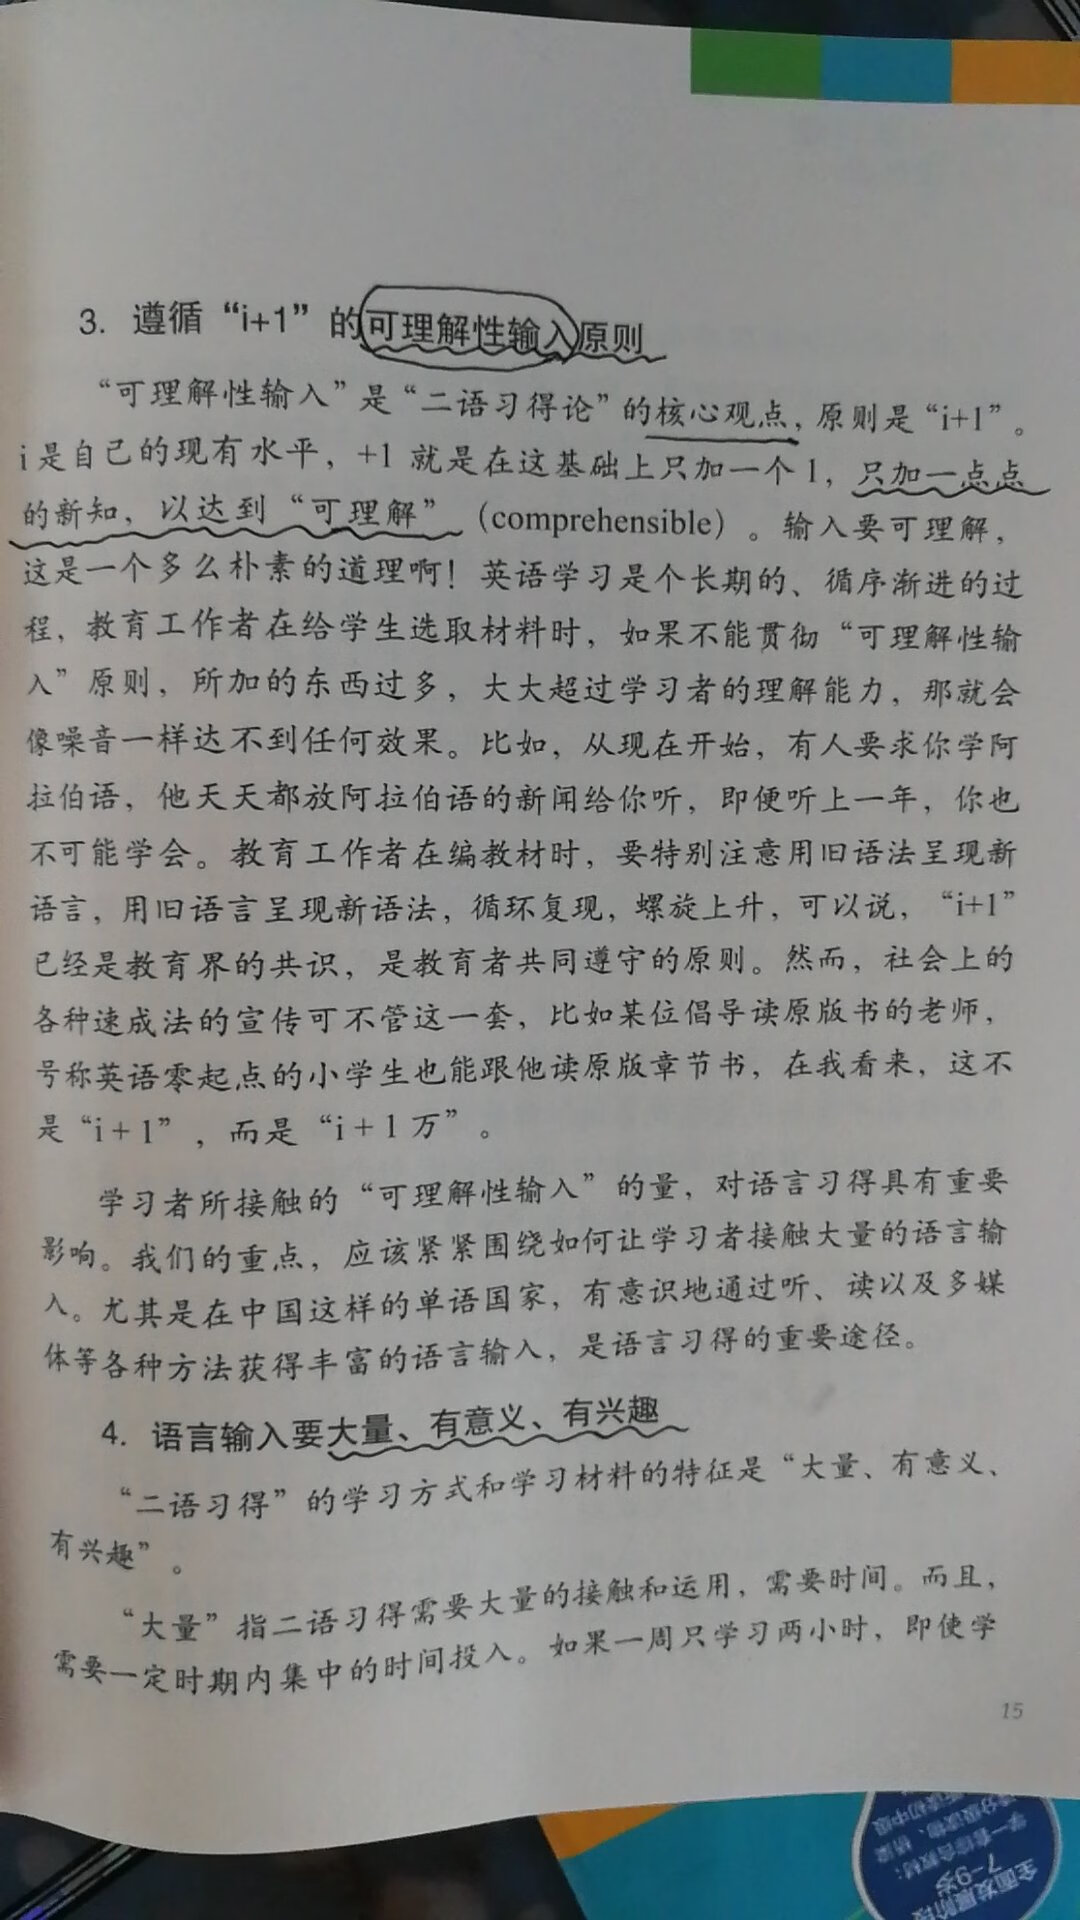 3. 遵循“i+1”的可理解性输入原则
“可理解性输入”是“二语习得论”的核心观点，原则是“i+1”。
i是自己的现有水平，+1就是在这基础上只加一个1，只加一点点
的新知，以达到“可理解”（comprehensible）。输入要可理解，
这是一个多么朴素的道理啊！英语学习是个长期的、循序渐进的过
程，教育工作者在给学生选取材料时，如果不能贯彻“可理解性输
入”原则，所加的东西过多，大大超过学习者的理解能力，那就会
像噪音一样达不到任何效果。比如，从现在开始，有人要求你学阿
拉伯语，他天天都放阿拉伯语的新闻给你听，即便听上一年，你也
不可能学会。教育工作者在编教材时，要特别注意用旧语法呈现新
语言，用旧语言呈现新语法，循环复现，螺旋上升，可以说，“i+1”
已经是教育界的共识，是教育者共同遵守的原则。然而，社会上的
各种速成法的宣传可不管这一套，比如某位倡导读原版书的老师，
号称英语零起点的小学生也能跟他读原版章节书，在我看来，这不
是“i+1”，而是“i+1万”。
学习者所接触的“可理解性输入”的量，对语言习得具有重要
影响。我们的重点，应该紧紧围绕如何让学习者接触大量的语言输
入。尤其是在中国这样的单语国家，有意识地通过听、读以及多媒
体等各种方法获得丰富的语言输入，是语言习得的重要途径。
4. 语言输入要大量、有意义、有兴趣
“二语习得”的学习方式和学习材料的特征是“大量、有意义、
有兴趣”。
“大量”指二语习得需要大量的接触和运用，需要时间。而且，
需要一定时期内集中的时间投入。如果一周只学习两小时，即使学
15
全面发展阶段
7-9岁
学一套综合教材；